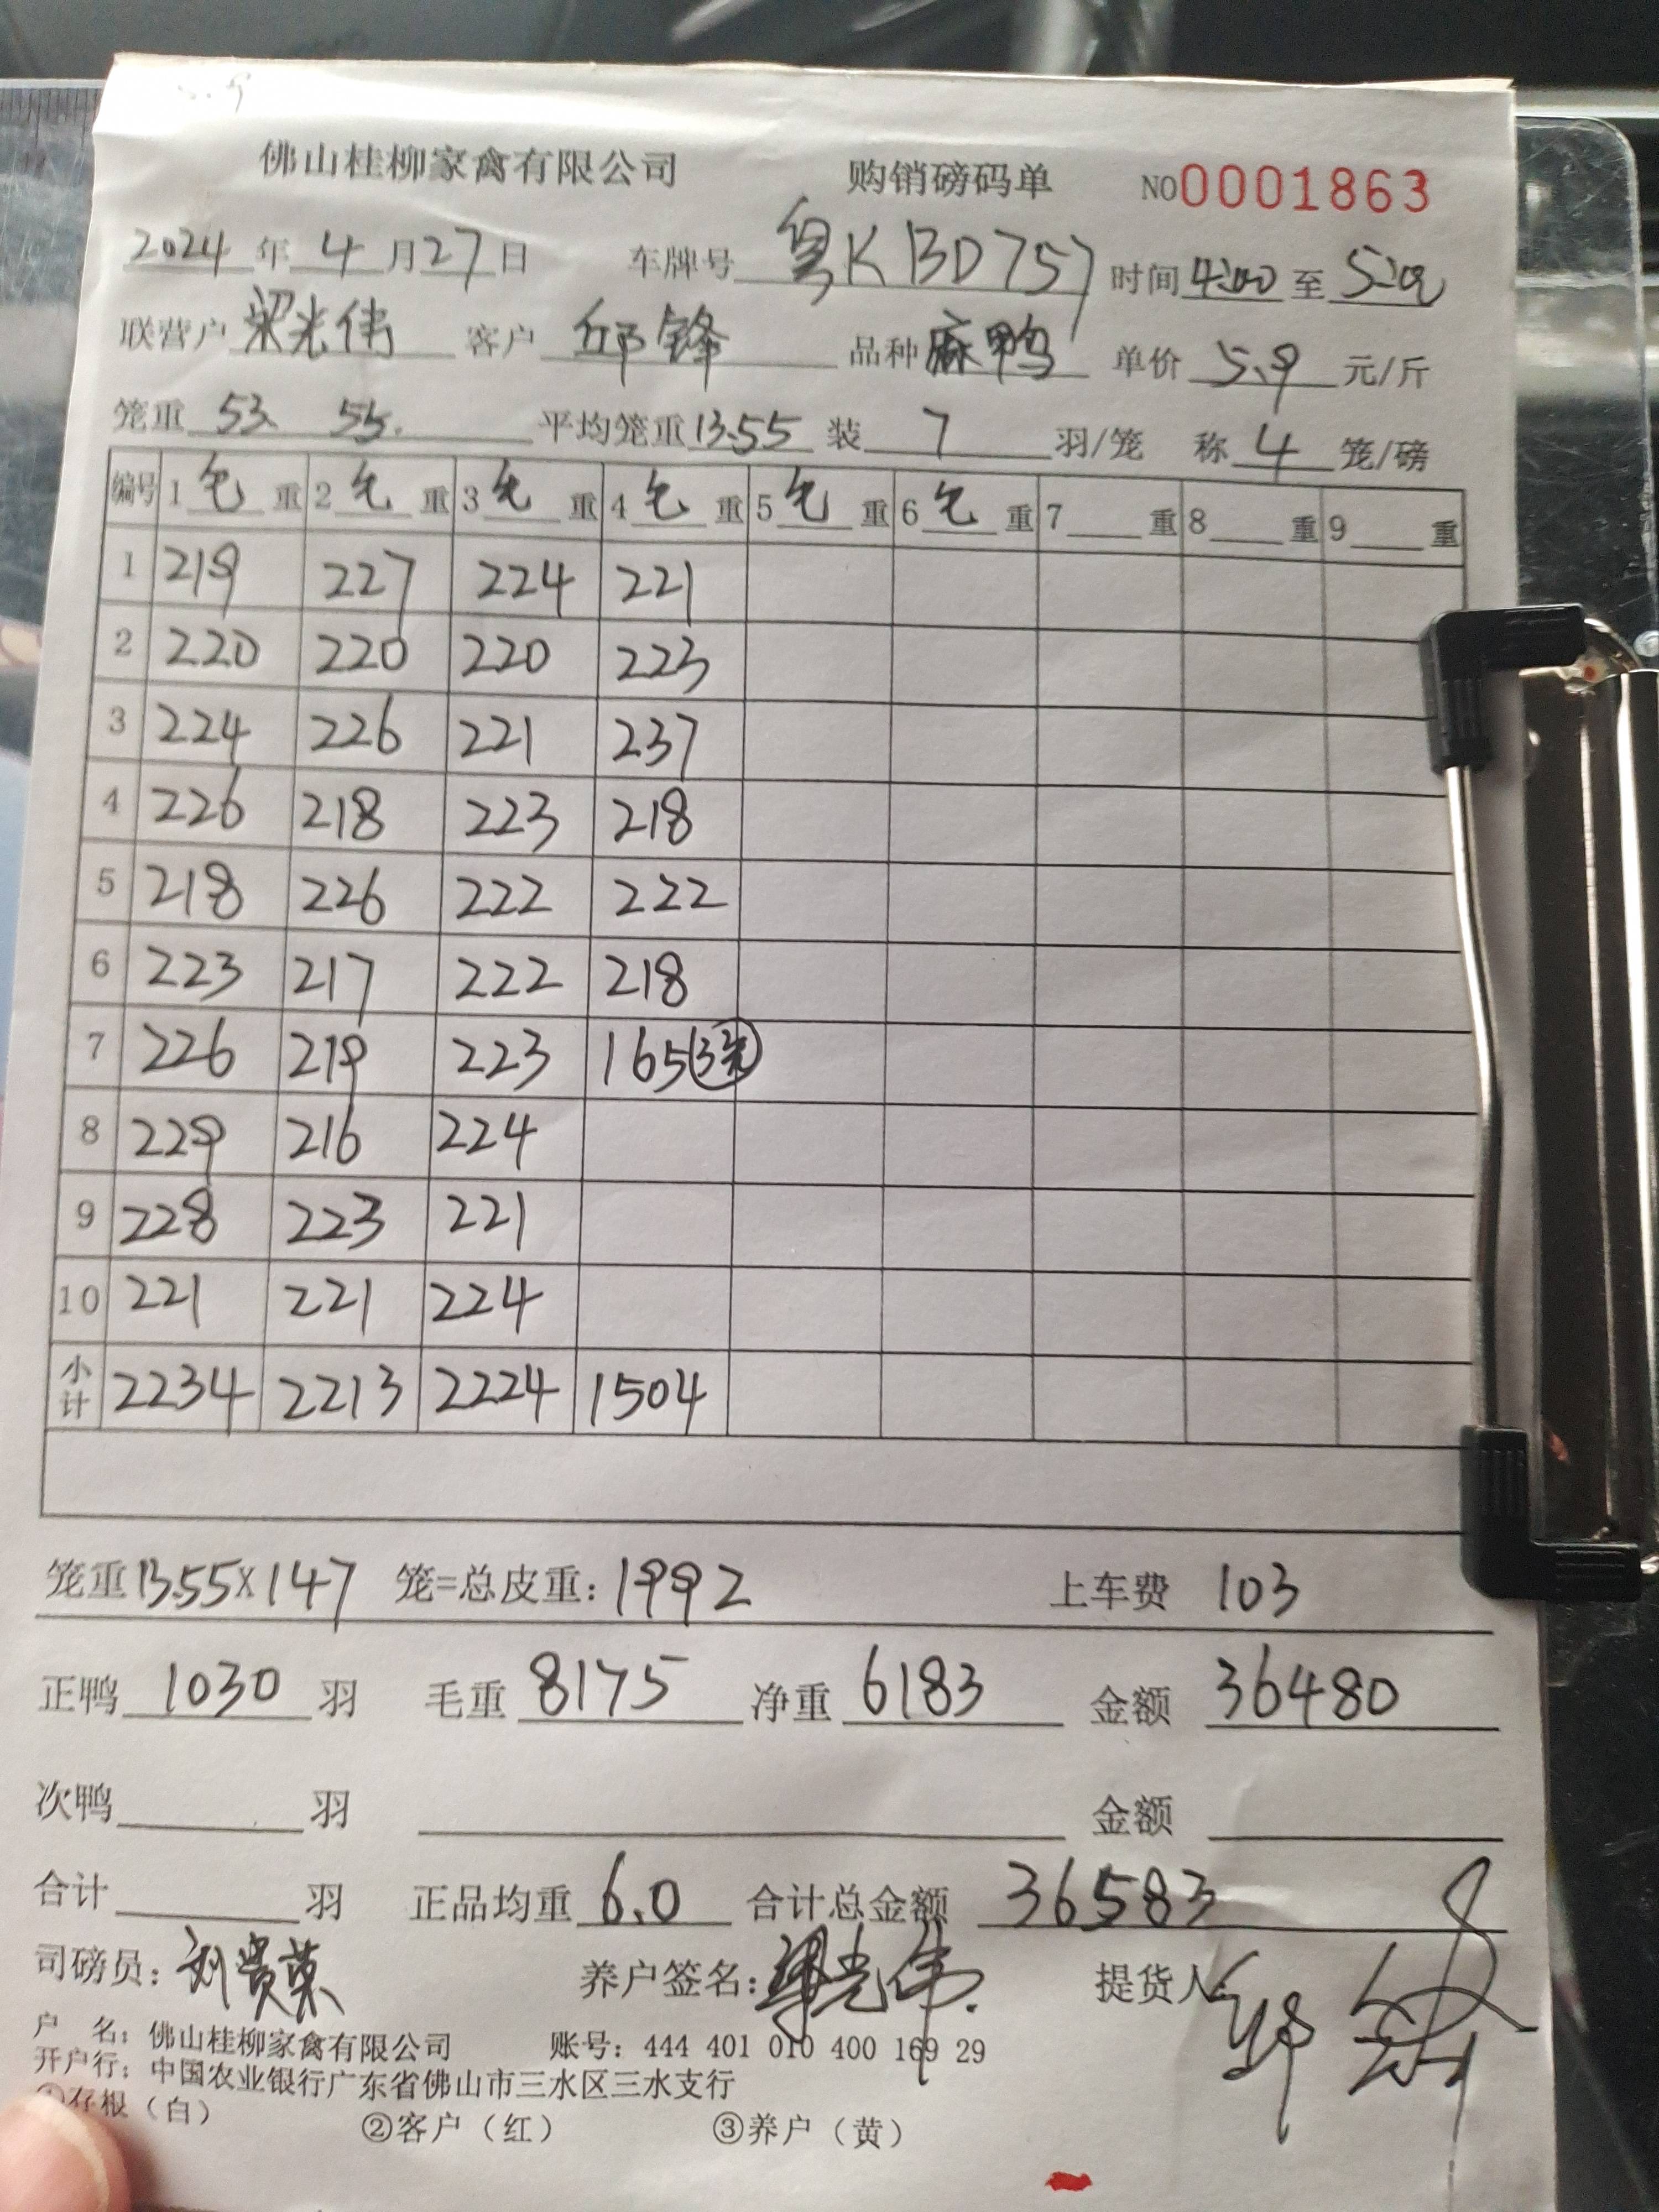 5.9
佛山桂柳家禽有限公司 购销磅码单 NO0001863
2024年4月27日 车牌号 粤KBD757 时间4:00至5:00
联营户 梁光伟 客户 邱锋 品种 麻鸭 单价 5.9 元/斤
笼重 53. 55. 平均笼重13.55 装 7 羽/笼 称 4 笼/磅
编号 1毛重 2毛重 3毛重 4毛重 5毛重 6毛重 7 重 8 重 9 重
1 219 227 224 221
2 220 220 220 223
3 224 226 221 237
4 226 218 223 218
5 218 226 222 222
6 223 217 222 218
7 226 219 223 165
8 229 216 224
9 228 223 221
10 221 221 224
小计 2234 2213 2224 1504
笼重13.55X147 笼=总皮重:1992 上车费 103
正鸭 1030 羽 毛重 8175 净重 6183 金额 36480
次鸭 羽 金额
合计 羽 正品均重 6.0 合计总金额 36583
司磅员:刘贵荣 养户签名:梁光伟 提货人: 邱锋
户 名: 佛山桂柳家禽有限公司 账号: 444 401 010 400 169 29
开户行: 中国农业银行广东省佛山市三水区三水支行
①存根(白) ②客户(红) ③养户(黄)